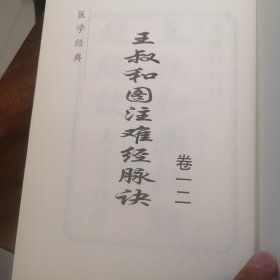 医学经典
王叔和图注难经脉诀
卷一二